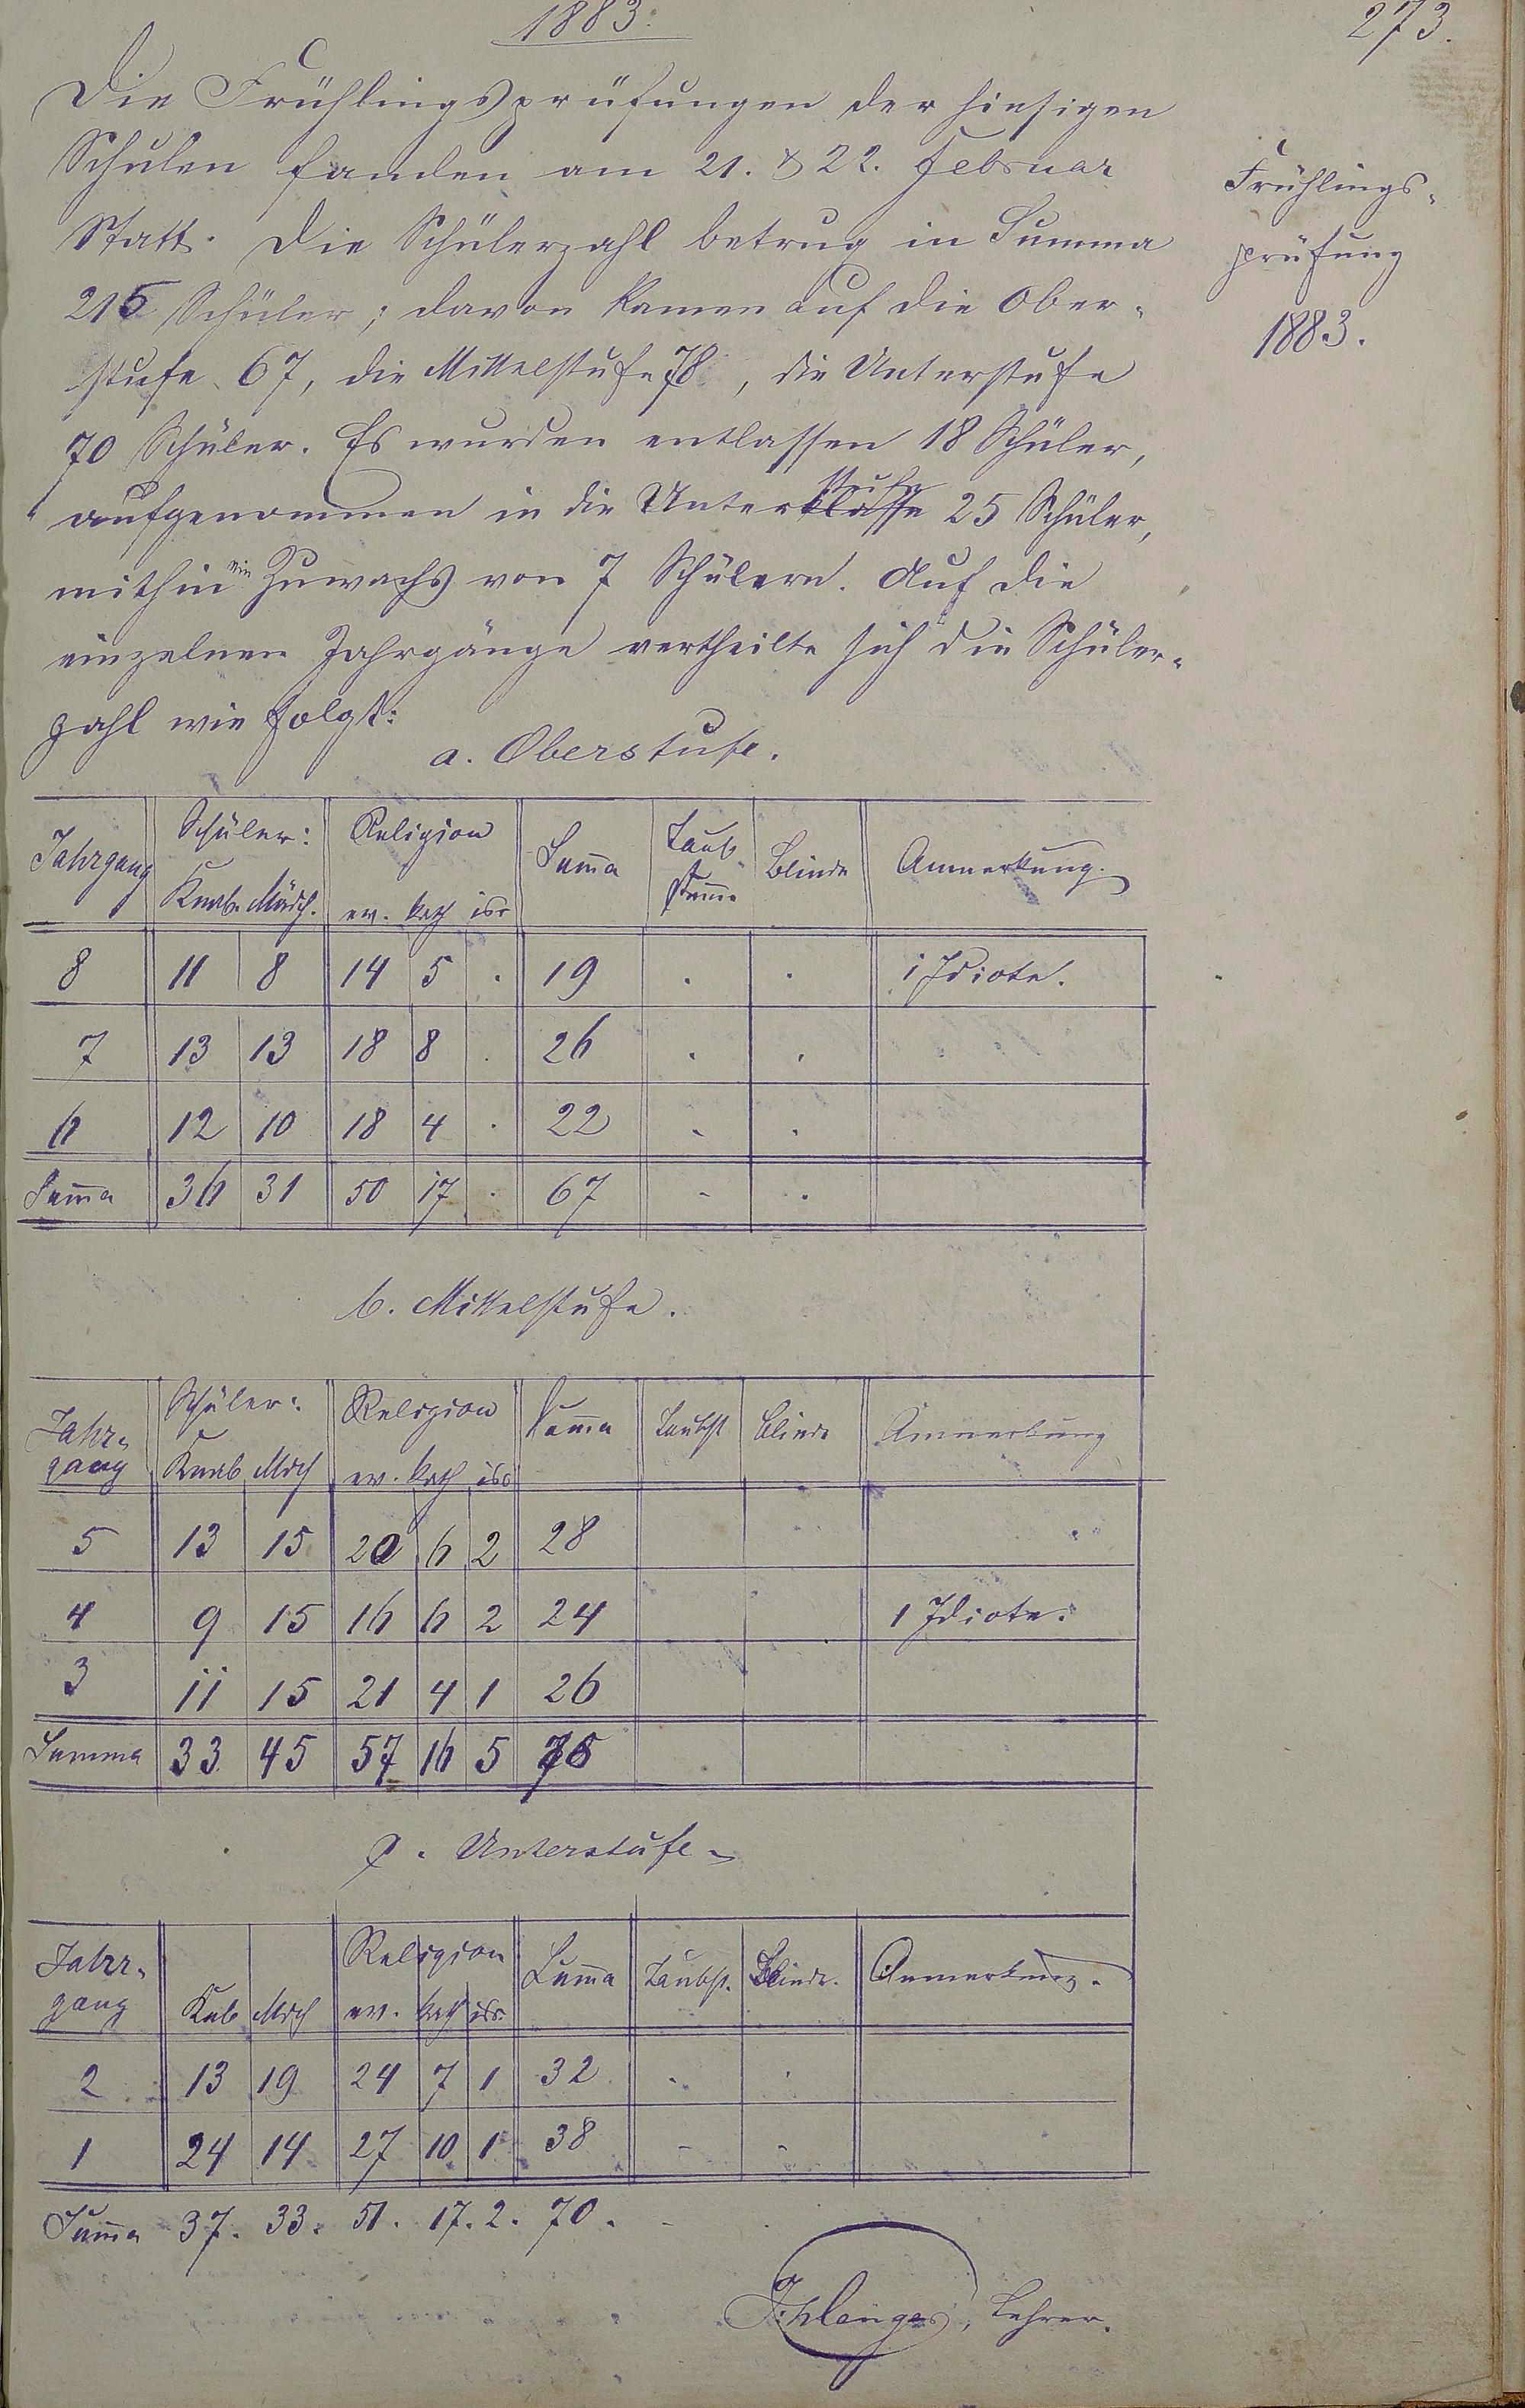 1883.
273.
Die Frühlingsprüfungen der hiesigen
Schulen fanden am 21. & 22. Februar
Statt. Die Schülerzahl betrug in Summa
215 Schüler; davon kamen auf die Ober-
stufe 67, die Mittelstufe 78, die Unterstufe
70 Schüler. Es wurden entlassen 18 Schüler,
aufgenommen in die Unterklasse stufe 25 Schüler,
mithin ein Zuwachs von 7 Schülern. Auf die
einzelnen Jahrgänge vertheilte sich die Schüler-
zahl wie folgt:
Frühlings-
prüfung
1883.
a. Oberstufe.
Jahrgang Schüler: Religion Suma Taub stume Blinde Anmerkung.
Knab. Mädch. ev. kath isr
8 11 8 14 5 . 19 . . 1 Idiote.
7 13 13 18 8 . 26 . .
6 12 10 18 4 . 22 . .
Suma 36 31 50 17 . 67 . .
b. Mittelstufe.
Jahr- gang Schüler: Religion Suma Taubst Blinde Anmerkung
Knab Mdch ev. kath isr
5 13 15 20 6 2 28
4 9 15 16 6 2 24 1 Idiote.
3 11 15 21 4 1 26
Summa 33 45 57 16 5 78
c. Unterstufe
Jahr- gang Religion Suma Taubst. Blinde. Anmerkung.
Knb Mdch ev. kath isr.
2 13 19 24 7 1 32 . .
1 24 14 27 10 1 38 . .
Suma 37. 33. 51. 17. 2. 70.
Lehrer.